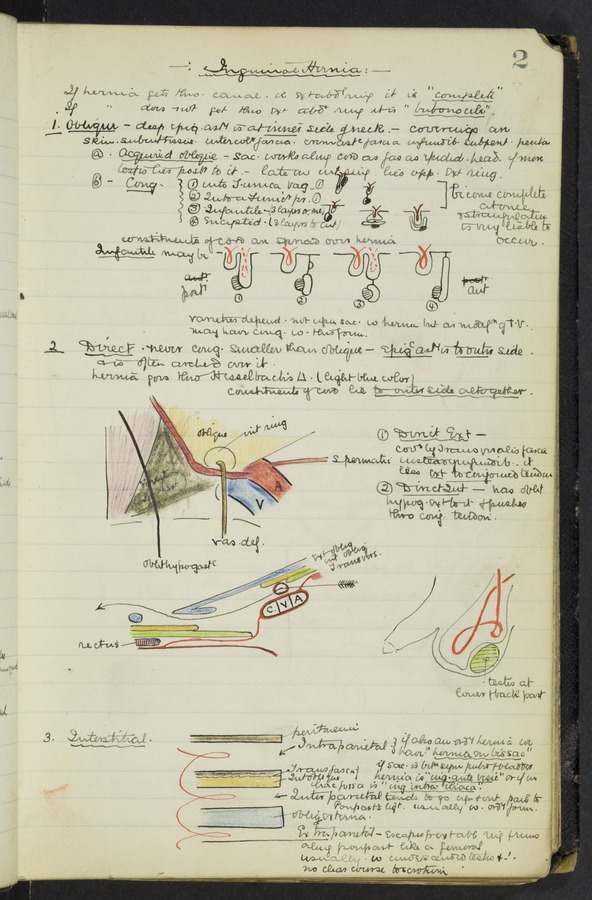 2
Inguinal Hernia:
If hernia gets thro. canal & ext abd ring it is "complete"
If " does not get thro ext abd ring it is "bubonocele".
1. Oblique - deep epig. art is at inner side of neck. - coverings are
skin. subcut tissue. intercol fascia. cremast fascia infundib. subperit.
a. Acquired oblique - sac. works along cord as far as epidid. head. if more
testis lies post to it. - late in life lies opp. Ext ring.
b - Cong.
① into Tunica vag.
② into a Funic pr.
③ Infantile - 3 layers
④ Encysted. (3 layers to cut)
become complete
at once
& strangulation
is very liable to
occur.
constituents of cord are spread over hernia
Infantile may be
post
① ② ③ ④
ant
varieties depend. not upon sac. w hernia but on of T.V.
may have cong. in this form.
2 Direct. never cong. smaller than oblique - epig art is to outer side.
& is often arched over it.
hernia goes thro Hesselbach's Δ. (light blue color)
constituents of cord lie to outer side altogether.
oblique int ring
direct
spermatic
A
V
vas def.
oblit hypogast
① Direct Ext -
cov by Transversalis fascia
instead of infundib. it
lies ext to conjoined tendon
② Direct Int - has oblit
hypog. ext to it & pushes
thro conj. tendon.
Ext obliq
int obliq
Transvrs.
C. V A
rectus
testis at
lower & back part
3. Interstitial.
peritoneum
Intraparietal } if also an ordy hernia
have "hernia en bissac"
if sac is bet sym pubis & bladder
hernia is "ing. ante vesic" or if in
iliac fossa is "ing intra iliaca".
Trans fascia
Int oblique
Interparietal tends to go up & out parl to
Pouparts ligt. usually is ordy form.
obliq externa.
Extraparietal - Escapes fr ext abd ring & runs
along poupart like a femoral
usually w undescended testis
no clear course to scrotum